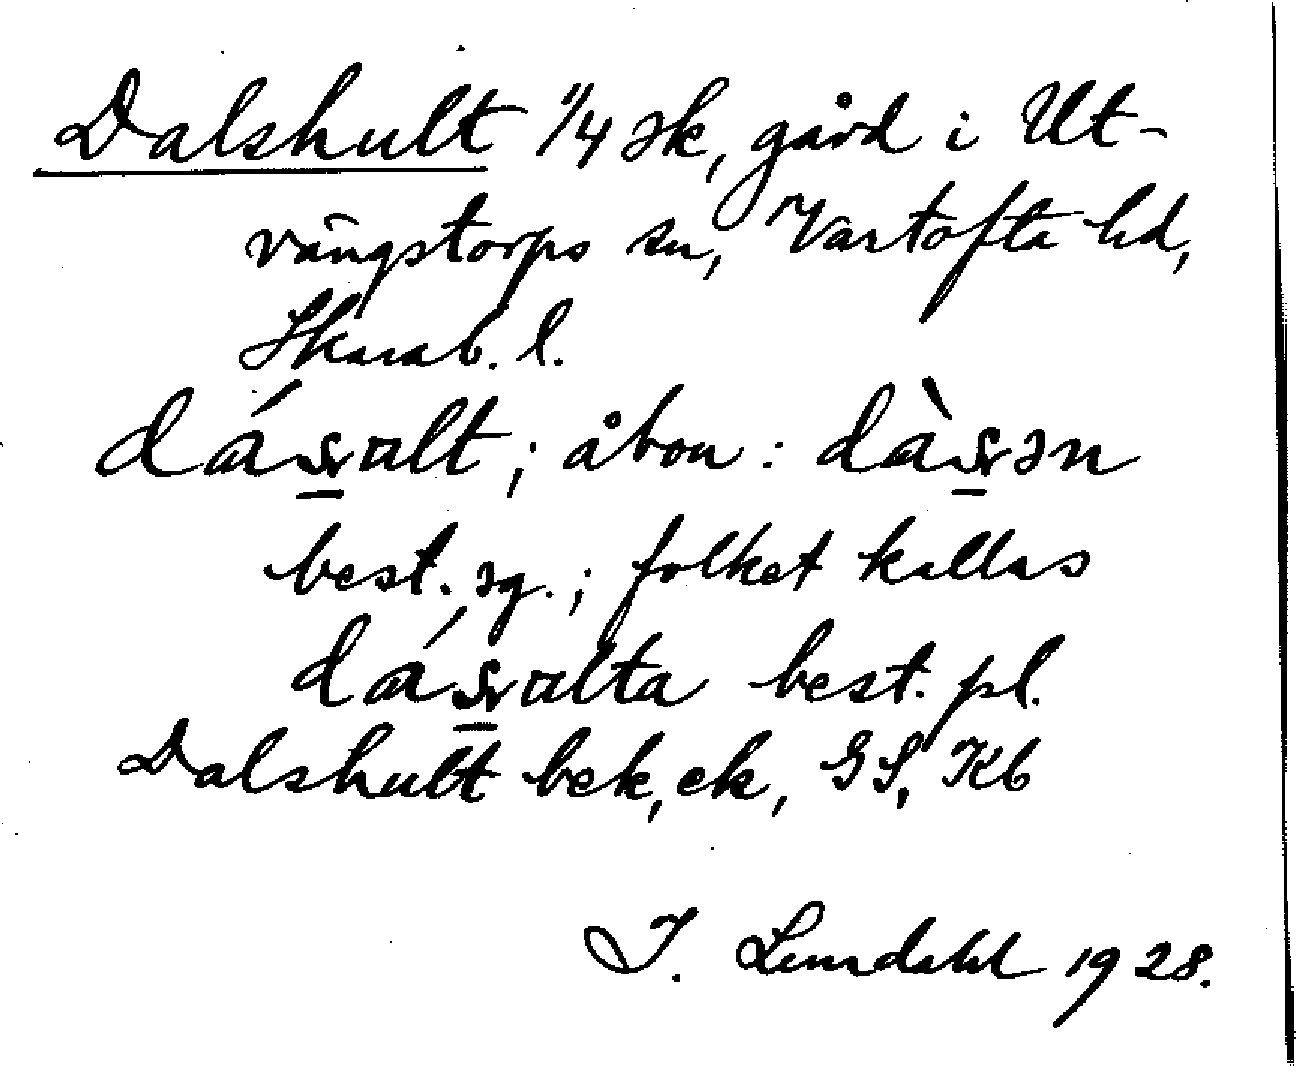 Dalshult 1/4 sk, gård i Ut-
vängstorps sn, Vartofta hd,
Skarab. l.
dásalt; åbon: dàsən
best. sg.; folket kallas
dásalta best. pl.
Dalshult bek, ek, GS, Kb
J. Lundahl 1928.